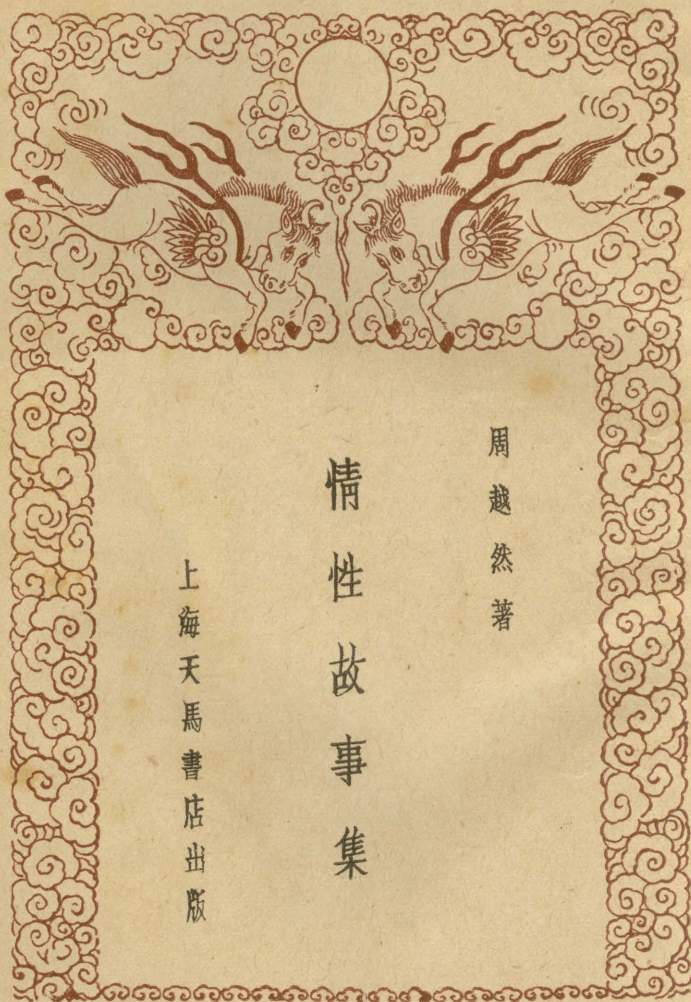 周越然著
情性故事集
上海天馬書店出版